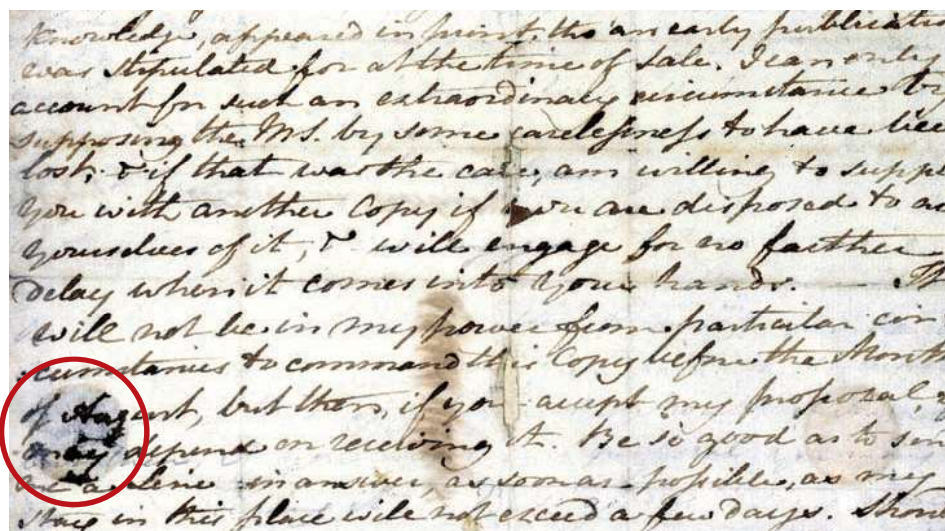 knowledge, appeared in print, tho' an early publicati
was stipulated for at the time of Sale. I can only
account for such an extraordinary circumstance by
supposing the MS. by some carelessness to have bee
lost; & if that was the case, am willing to supp
you with another Copy if you are disposed to av
yourselves of it, & will engage for no farther
delay when it comes into your hands. — It
will not be in my power from particular cir
:cumstances to command this Copy before the Month
of August, but then, if you accept my proposal, y
may depend on receiving it. Be so good as to sen
me a Line in answer, as soon as possible, as my
stay in this place will not exceed a few days. Shou